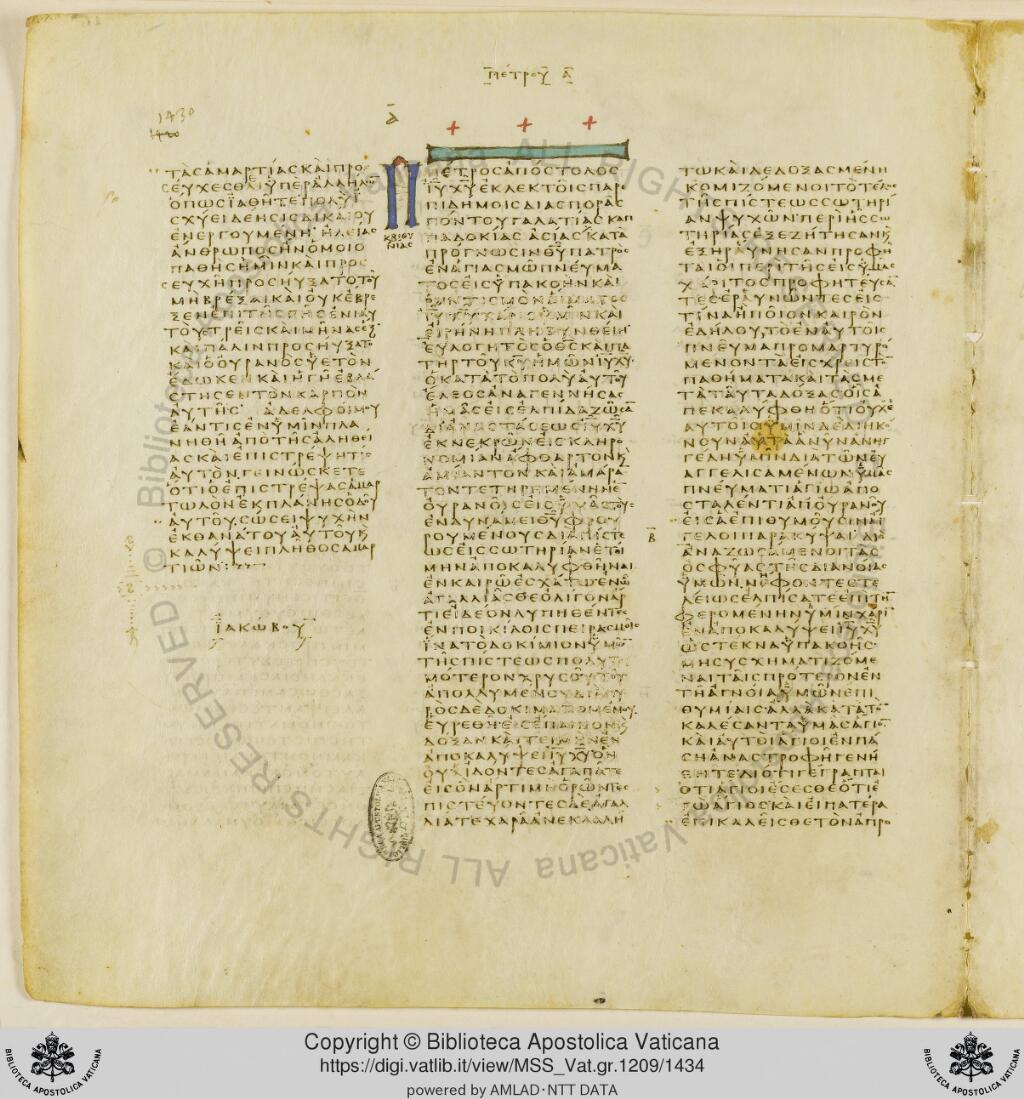 ΠΕΤΡΟΥ Α
1430
ΤΑΣΑΜΑΡΤΙΑΣΚΑΙΠΡΟΣ
ΕΥΧΕΣΘΑΙΥΠΕΡΑΛΛΗΛΩ
ΟΠΩΣΙΑΘΗΤΕΠΟΛΥΙ
ΣΧΥΕΙΔΕΗΣΙΣΔΙΚΑΙΟΥ
ΕΝΕΡΓΟΥΜΕΝΗΗΛΕΙΑΣ
ΑΝΘΡΩΠΟΣΗΝΟΜΟΙΟ
ΠΑΘΗΣΗΜΙΝΚΑΙΠΡΟΣ
ΕΥΧΗΠΡΟΣΗΥΞΑΤΟΤΟΥ
ΜΗΒΡΕΞΑΙΚΑΙΟΥΚΕΒΡΕ
ΞΕΝΕΠΙΤΗΣΓΗΣΕΝΙΑΥ
ΤΟΥΣΤΡΕΙΣΚΑΙΜΗΝΑΣΕΞ
ΚΑΙΠΑΛΙΝΠΡΟΣΗΥΞΑΤΟ
ΚΑΙΟΟΥΡΑΝΟΣΥΕΤΟΝ
ΕΔΩΚΕΝΚΑΙΗΓΗΕΒΛΑ
ΣΤΗΣΕΝΤΟΝΚΑΡΠΟΝ
ΑΥΤΗΣ ΑΔΕΛΦΟΙΜΟΥ
ΕΑΝΤΙΣΕΝΥΜΙΝΠΛΑ
ΝΗΘΗΑΠΟΤΗΣΑΛΗΘΕΙ
ΑΣΚΑΙΕΠΙΣΤΡΕΨΗΤΙΣ
ΑΥΤΟΝΓΕΙΝΩΣΚΕΤΕ
ΟΤΙΟΕΠΙΣΤΡΕΨΑΣΑΜΑΡ
ΤΩΛΟΝΕΚΠΛΑΝΗΣΟΔΟΥ
ΑΥΤΟΥΣΩΣΕΙΨΥΧΗΝ
ΕΚΘΑΝΑΤΟΥΑΥΤΟΥΚ
ΚΑΛΥΨΕΙΠΛΗΘΟΣΑΜΑΡ
ΤΙΩΝ:
ΙΑΚΩΒΟΥ
Α
ΠΕΤΡΟΣΑΠΟΣΤΟΛΟΣ
ΙΥΧΥΕΚΛΕΚΤΟΙΣΠΑΡΕ
ΠΙΔΗΜΟΙΣΔΙΑΣΠΟΡΑΣ
ΠΟΝΤΟΥΓΑΛΑΤΙΑΣΚΑΠ
ΠΑΔΟΚΙΑΣΑΣΙΑΣΚΑΤΑ
ΠΡΟΓΝΩΣΙΝΘΥΠΑΤΡΟΣ
ΕΝΑΓΙΑΣΜΩΠΝΕΥΜΑ
ΤΟΣΕΙΣΥΠΑΚΟΗΝΚΑΙ
ΡΑΝΤΙΣΜΟΝΑΙΜΑΤΟΣ
ΙΥΧΥΧΑΡΙΣΥΜΙΝΚΑΙ
ΕΙΡΗΝΗΠΛΗΘΥΝΘΕΙΗ
ΕΥΛΟΓΗΤΟΣΟΘΕΣΚΑΙΠΑ
ΤΗΡΤΟΥΚΥΗΜΩΝΙΥΧΥ
ΟΚΑΤΑΤΟΠΟΛΥΑΥΤΟΥ
ΕΛΕΟΣΑΝΑΓΕΝΝΗΣΑΣ
ΗΜΑΣΕΙΣΕΛΠΙΔΑΖΩΣΑ
ΔΙΑΝΑΣΤΑΣΕΩΣΙΥΧΥ
ΕΚΝΕΚΡΩΝΕΙΣΚΛΗΡΟ
ΝΟΜΙΑΝΑΦΘΑΡΤΟΝΚ
ΑΜΙΑΝΤΟΝΚΑΙΑΜΑΡΑ
ΤΟΝΤΕΤΗΡΗΜΕΝΗΝΕ
ΟΥΡΑΝΟΙΣΕΙΣΥΜΑΣΤΟΥΣ
ΕΝΔΥΝΑΜΕΙΘΥΦΡΟΥ
ΡΟΥΜΕΝΟΥΣΔΙΑΠΙΣΤΕ
ΩΣΕΙΣΣΩΤΗΡΙΑΝΕΤΟΙ
ΜΗΝΑΠΟΚΑΛΥΦΘΗΝΑΙ
ΕΝΚΑΙΡΩΕΣΧΑΤΩΕΝΩ
ΑΓΑΛΛΙΑΣΘΕΟΛΙΓΟΝΑΡ
ΤΙΕΙΔΕΟΝΛΥΠΗΘΕΝΤΕΣ
ΕΝΠΟΙΚΙΛΟΙΣΠΕΙΡΑΣΜΟΙΣ
ΙΝΑΤΟΔΟΚΙΜΙΟΝΥΜΩ
ΤΗΣΠΙΣΤΕΩΣΠΟΛΥΤΙ
ΜΟΤΕΡΟΝΧΡΥΣΙΟΥΤΟΥ
ΑΠΟΛΛΥΜΕΝΟΥΔΙΑΠΥ
ΡΟΣΔΕΔΟΚΙΜΑΖΟΜΕΝΟΥ
ΕΥΡΕΘΗΕΙΣΕΠΑΙΝΟΝΚ
ΔΟΞΑΝΚΑΙΤΕΙΜΗΝΕΝ
ΑΠΟΚΑΛΥΨΕΙΙΥΧΥΟΝ
ΟΥΚΙΔΟΝΤΕΣΑΓΑΠΑΤΕ
ΕΙΣΟΝΑΡΤΙΜΗΟΡΩΝΤΕΣ
ΠΙΣΤΕΥΟΝΤΕΣΔΕΑΓΑΛ
ΛΙΑΤΕΧΑΡΑΑΝΕΚΛΑΛΗ
ΤΩΚΑΙΔΕΔΟΞΑΣΜΕΝΗ
ΚΟΜΙΖΟΜΕΝΟΙΤΟΤΕΛΟΣ
ΤΗΣΠΙΣΤΕΩΣΣΩΤΗΡΙ
ΑΝΨΥΧΩΝΠΕΡΙΗΣΣΩ
ΤΗΡΙΑΣΕΞΕΖΗΤΗΣΑΝΚ
ΕΞΗΡΑΥΝΗΣΑΝΠΡΟΦΗ
ΤΑΙΟΙΠΕΡΙΤΗΣΕΙΣΥΜΑΣ
ΧΑΡΙΤΟΣΠΡΟΦΗΤΕΥΣΑ
ΤΕΣΕΡΑΥΝΩΝΤΕΣΕΙΣ
ΤΙΝΑΗΠΟΙΟΝΚΑΙΡΟΝ
ΕΔΗΛΟΥΤΟΕΝΑΥΤΟΙΣ
ΠΝΕΥΜΑΠΡΟΜΑΡΤΥΡΟ
ΜΕΝΟΝΤΑΕΙΣΧΡΕΙΣΤΟ
ΠΑΘΗΜΑΤΑΚΑΙΤΑΣΜΕ
ΤΑΤΑΥΤΑΔΟΞΑΣΟΙΣΑ
ΠΕΚΑΛΥΦΘΗΟΤΙΟΥΧΕ
ΑΥΤΟΙΣΥΜΙΝΔΕΔΙΗΚΟ
ΝΟΥΝΑΥΤΑΑΝΥΝΑΝΗΓ
ΓΕΛΗΥΜΙΝΔΙΑΤΩΝΕΥ
ΑΓΓΕΛΙΣΑΜΕΝΩΝΥΜΑΣ
ΠΝΕΥΜΑΤΙΑΓΙΩΑΠΟ
ΣΤΑΛΕΝΤΙΑΠΟΥΡΑΝΟΥ
ΕΙΣΑΕΠΙΘΥΜΟΥΣΙΝΑΓ
ΓΕΛΟΙΠΑΡΑΚΥΨΑΙΔΙΟ
Β
ΑΝΑΖΩΣΑΜΕΝΟΙΤΑΣ
ΟΣΦΥΑΣΤΗΣΔΙΑΝΟΙΑΣ
ΥΜΩΝΝΗΦΟΝΤΕΣΤΕ
ΛΕΙΩΣΕΛΠΙΣΑΤΕΕΠΙΤΗ
ΦΕΡΟΜΕΝΗΝΥΜΙΝΧΑΡΙ
ΕΝΑΠΟΚΑΛΥΨΕΙΙΥΧΥ
ΩΣΤΕΚΝΑΥΠΑΚΟΗΣ
ΜΗΣΥΣΧΗΜΑΤΙΖΟΜΕ
ΝΑΙΤΑΙΣΠΡΟΤΕΡΟΝΕΝ
ΤΗΑΓΝΟΙΑΥΜΩΝΕΠΙ
ΘΥΜΙΑΙΣΑΛΛΑΚΑΤΑΤΟ
ΚΑΛΕΣΑΝΤΑΥΜΑΣΑΓΙΟ
ΚΑΙΑΥΤΟΙΑΓΙΟΙΕΝΠΑ
ΣΗΑΝΑΣΤΡΟΦΗΓΕΝΗ
ΘΗΤΕΔΙΟΤΙΓΕΓΡΑΠΤΑΙ
ΟΤΙΑΓΙΟΙΕΣΕΣΘΕΟΤΙΕ
ΓΩΑΓΙΟΣΚΑΙΕΙΠΑΤΕΡΑ
ΕΠΙΚΑΛΕΙΣΘΕΤΟΝΑΠΡΟ
Copyright © Biblioteca Apostolica Vaticana
https://digi.vatlib.it/view/MSS_Vat.gr.1209/1434
powered by AMLAD·NTT DATA